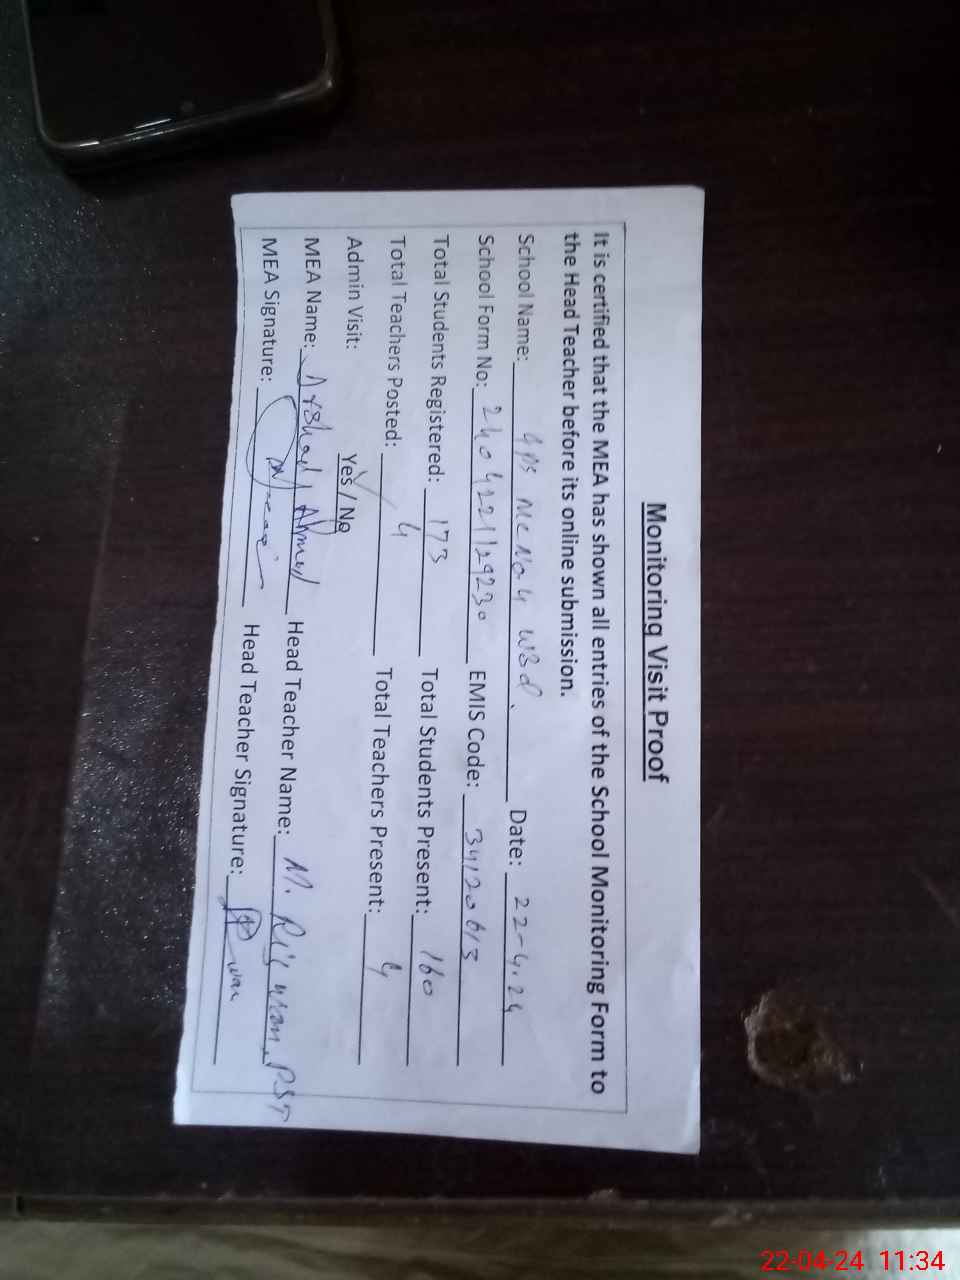 Monitoring Visit Proof
It is certified that the MEA has shown all entries of the School Monitoring Form to
the Head Teacher before its online submission.
School Name: GPS MC No. 4 WBD. Date: 22-4.24
School Form No: 2404221129230 EMIS Code: 34120613
Total Students Registered: 173 Total Students Present: 160
Total Teachers Posted: 4 Total Teachers Present: 4
Admin Visit: Yes / No
MEA Name: Arshad Ahmed Head Teacher Name: M. Rizwan, PST
MEA Signature: Head Teacher Signature:
22-04-24 11:34